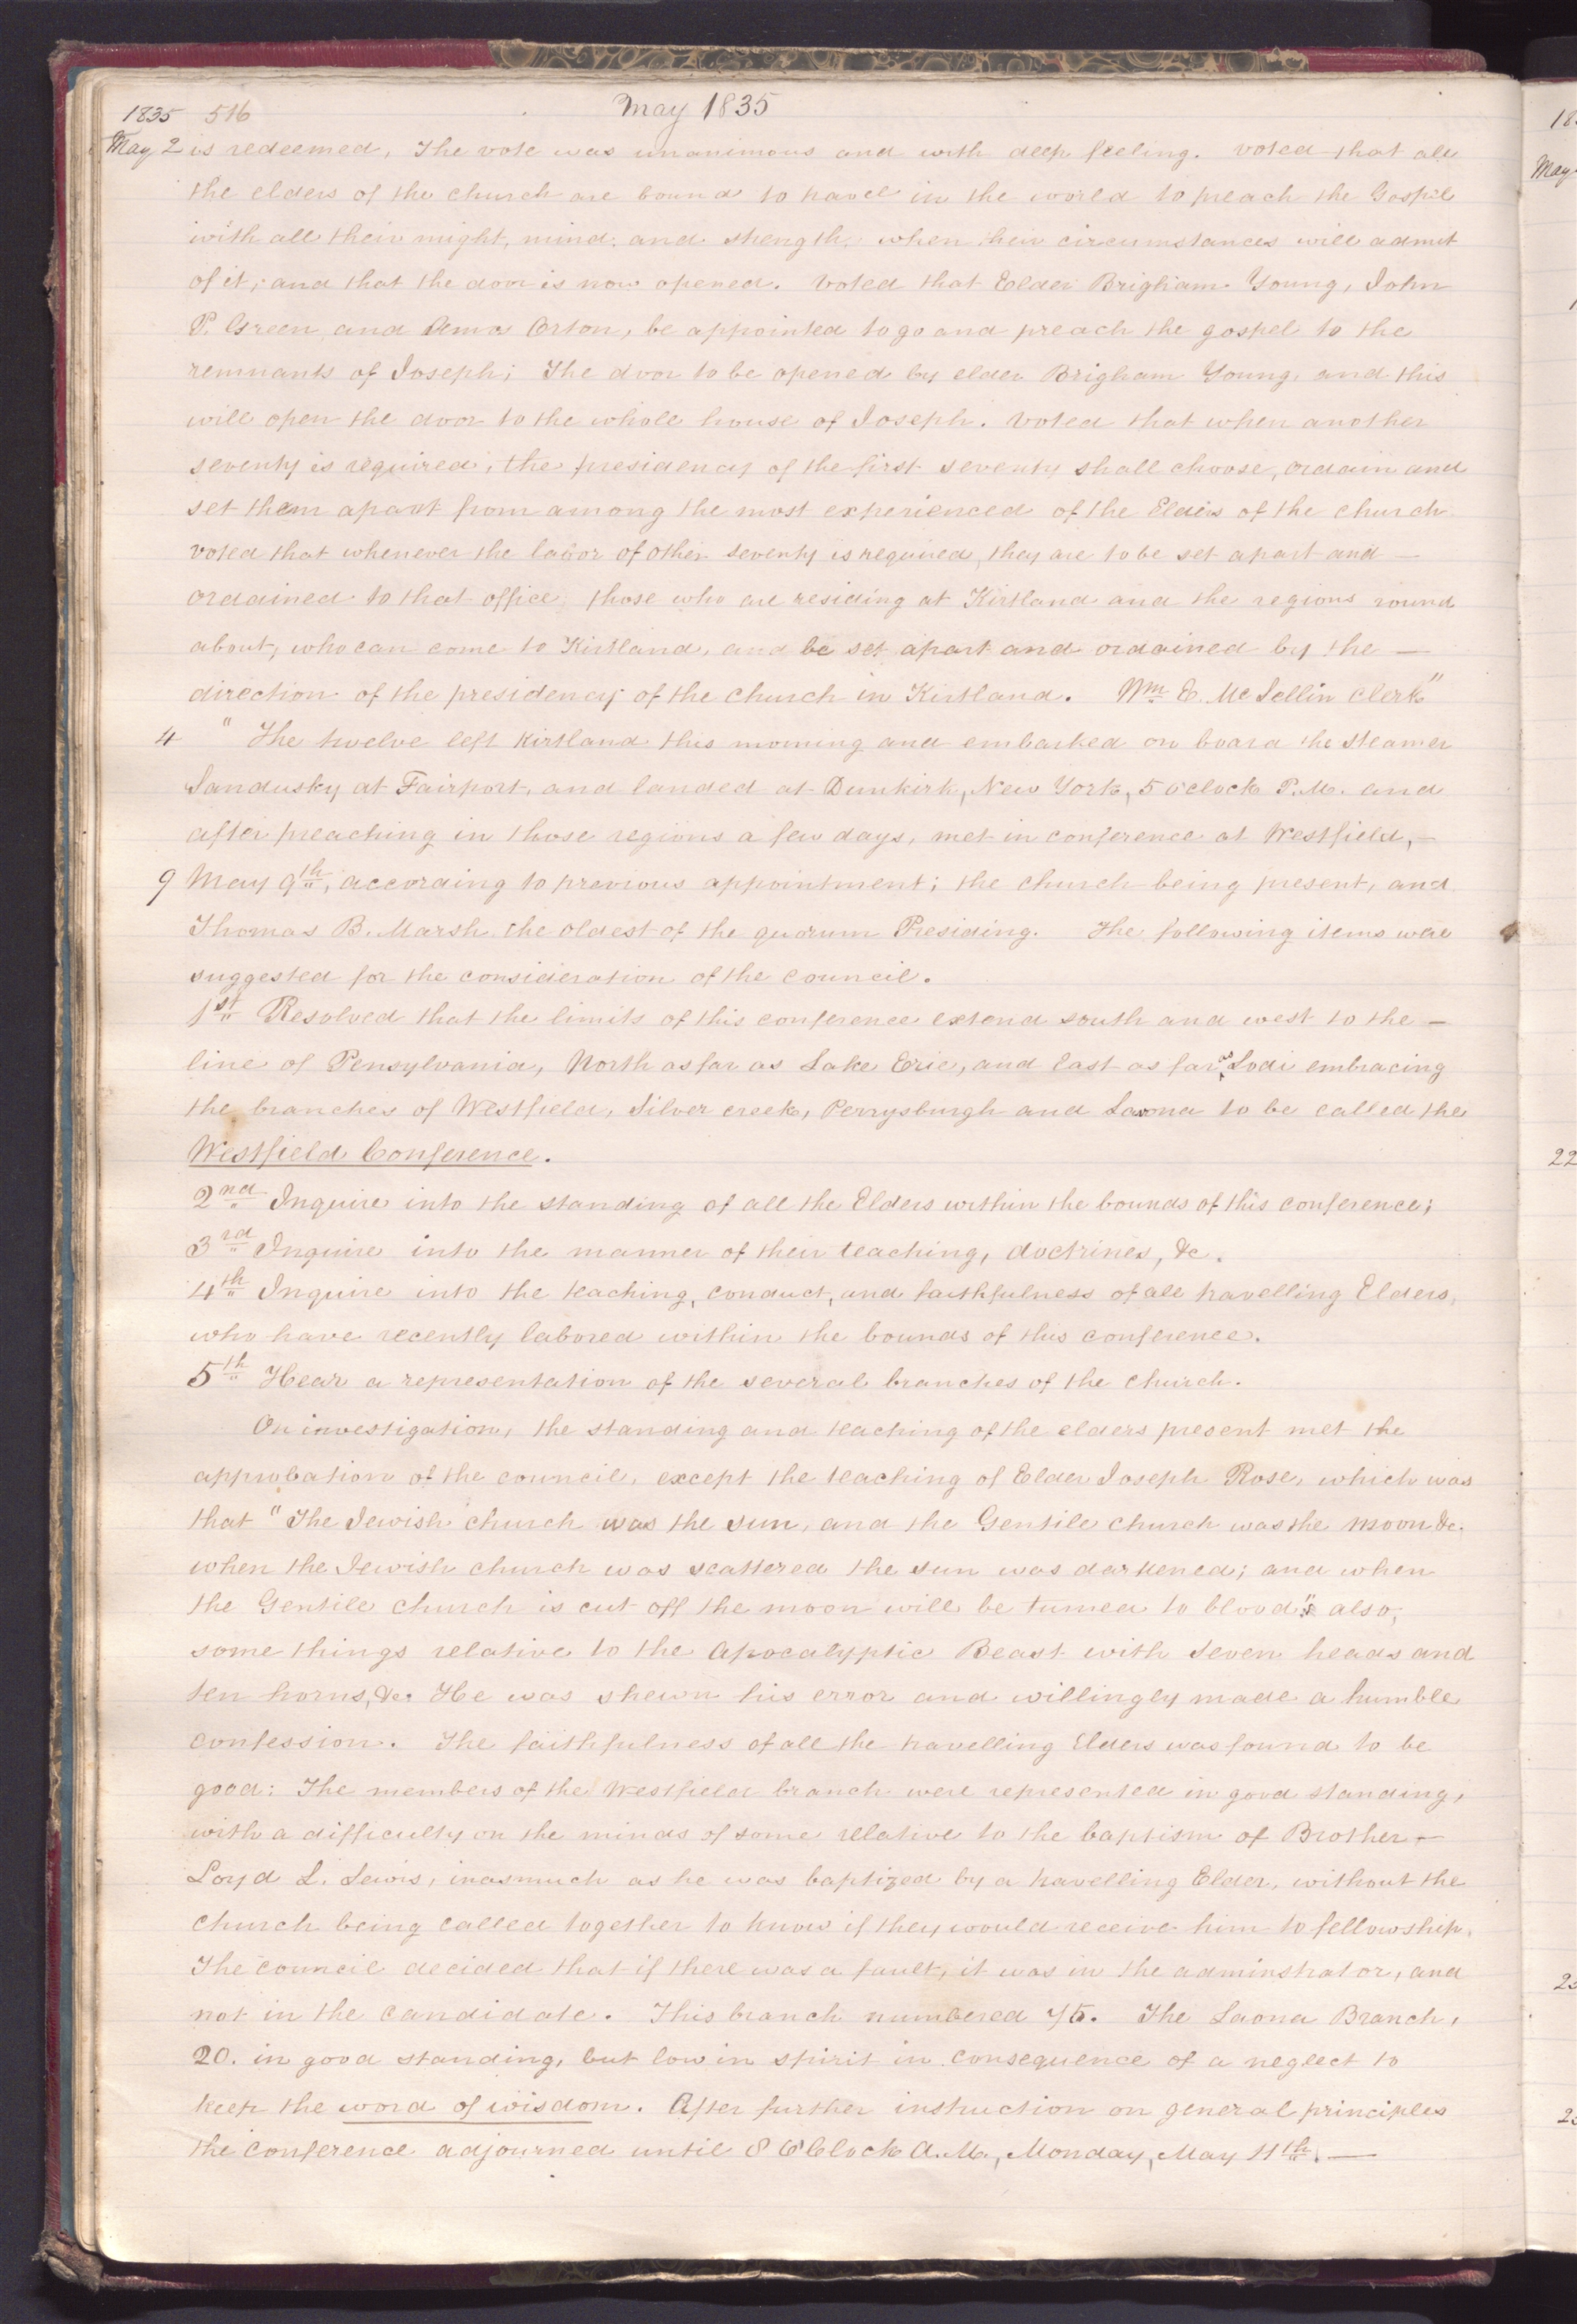 1835 516 May 1835
May 2 is redeemed, The vote was unanimous and with deep feeling. voted that all
the elders of the church are bound to travel in the world to preach the Gospel
with all their might, mind, and strength, when their circumstances will admit
of it; and that the door is now opened. voted that Elder Brigham Young, John
P. Green, and Amos Orton, be appointed to go and preach the gospel to the
remnants of Joseph; The door to be opened by elder Brigham Young, and this
will open the door to the whole house of Joseph. voted that when another
seventy is required, the presidency of the first seventy shall choose, ordain and
set them apart from among the most experienced of the Elders of the church
voted that whenever the labor of other seventy is required, they are to be set apart and —
ordained to that office, those who are residing at Kirtland and the regions round
about, who can come to Kirtland, and be set apart and ordained by the —
direction of the presidency of the church in Kirtland. Wm E. McLellin Clerk"
4 " The twelve left Kirtland this morning and embarked on board the steamer
Sandusky at Fairport, and landed at Dunkirk, New York, 5 o'clock P.M. and
after preaching in those regions a few days, met in conference at Westfield, —
9 May 9th, according to previous appointment; the church being present, and
Thomas B. Marsh the oldest of the quorum Presiding. The following items were
suggested for the consideration of the council.
1st Resolved that the limits of this conference extend south and west to the —
line of Pensylvania, North as far as Lake Erie, and East as far as Lodi embracing
the branches of Westfield, Silver creek, Perrysburgh and Laona to be called the
Westfield Conference.
2nd Inquire into the standing of all the Elders within the bounds of this conference;
3rd Inquire into the manner of their teaching, doctrines, &c.
4th Inquire into the teaching, conduct, and faithfulness of all travelling Elders,
who have recently labored within the bounds of this conference.
5th Hear a representation of the several branches of the church.
On investigation, the standing and teaching of the elders present met the
approbation of the council, except the teaching of Elder Joseph Rose, which was
that "The Jewish church was the sun, and the Gentile church was the moon &c.
when the Jewish church was scattered the sun was darkened; and when
the Gentile church is cut off the moon will be turned to blood"; also,
some things relative to the Apocalyptic Beast with seven heads and
ten horns, &c. He was shewn his error and willingly made a humble
confession. The faithfulness of all the travelling Elders was found to be
good: The members of the Westfield branch were represented in good standing,
with a difficulty on the minds of some relative to the baptism of Brother —
Loyd L. Lewis, inasmuch as he was baptized by a travelling Elder, without the
church being called together to know if they would receive him to fellowship.
The council decided that if there was a fault, it was in the adminstrator, and
not in the candidate. This branch numbered 75. The Laona Branch,
20. in good standing, but low in spirit in consequence of a neglect to
keep the word of wisdom. After further instruction on general principles
the conference adjourned until 8 O'Clock A.M., Monday, May 11th. —
May
22